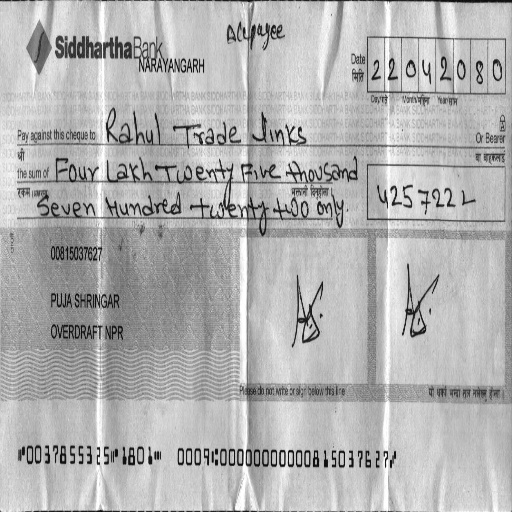 A/c payee
Siddhartha Bank
NARAYANGARH
Date
मिति
22042080
Day/गते Month/महिना Year/साल
Pay against this cheque to Rahul Trade links Or Bearer
श्री वा वाहकलाई
the sum of Four Lakh Twenty Five thousand
रकम (अक्षरमा)
Seven Hundred twenty two only. 4257222
00815037627
PUJA SHRINGAR
OVERDRAFT NPR
Please do not write or sign below this line
⑈0037855325⑈1801⑉ 0009⑆00000000000815037627⑈